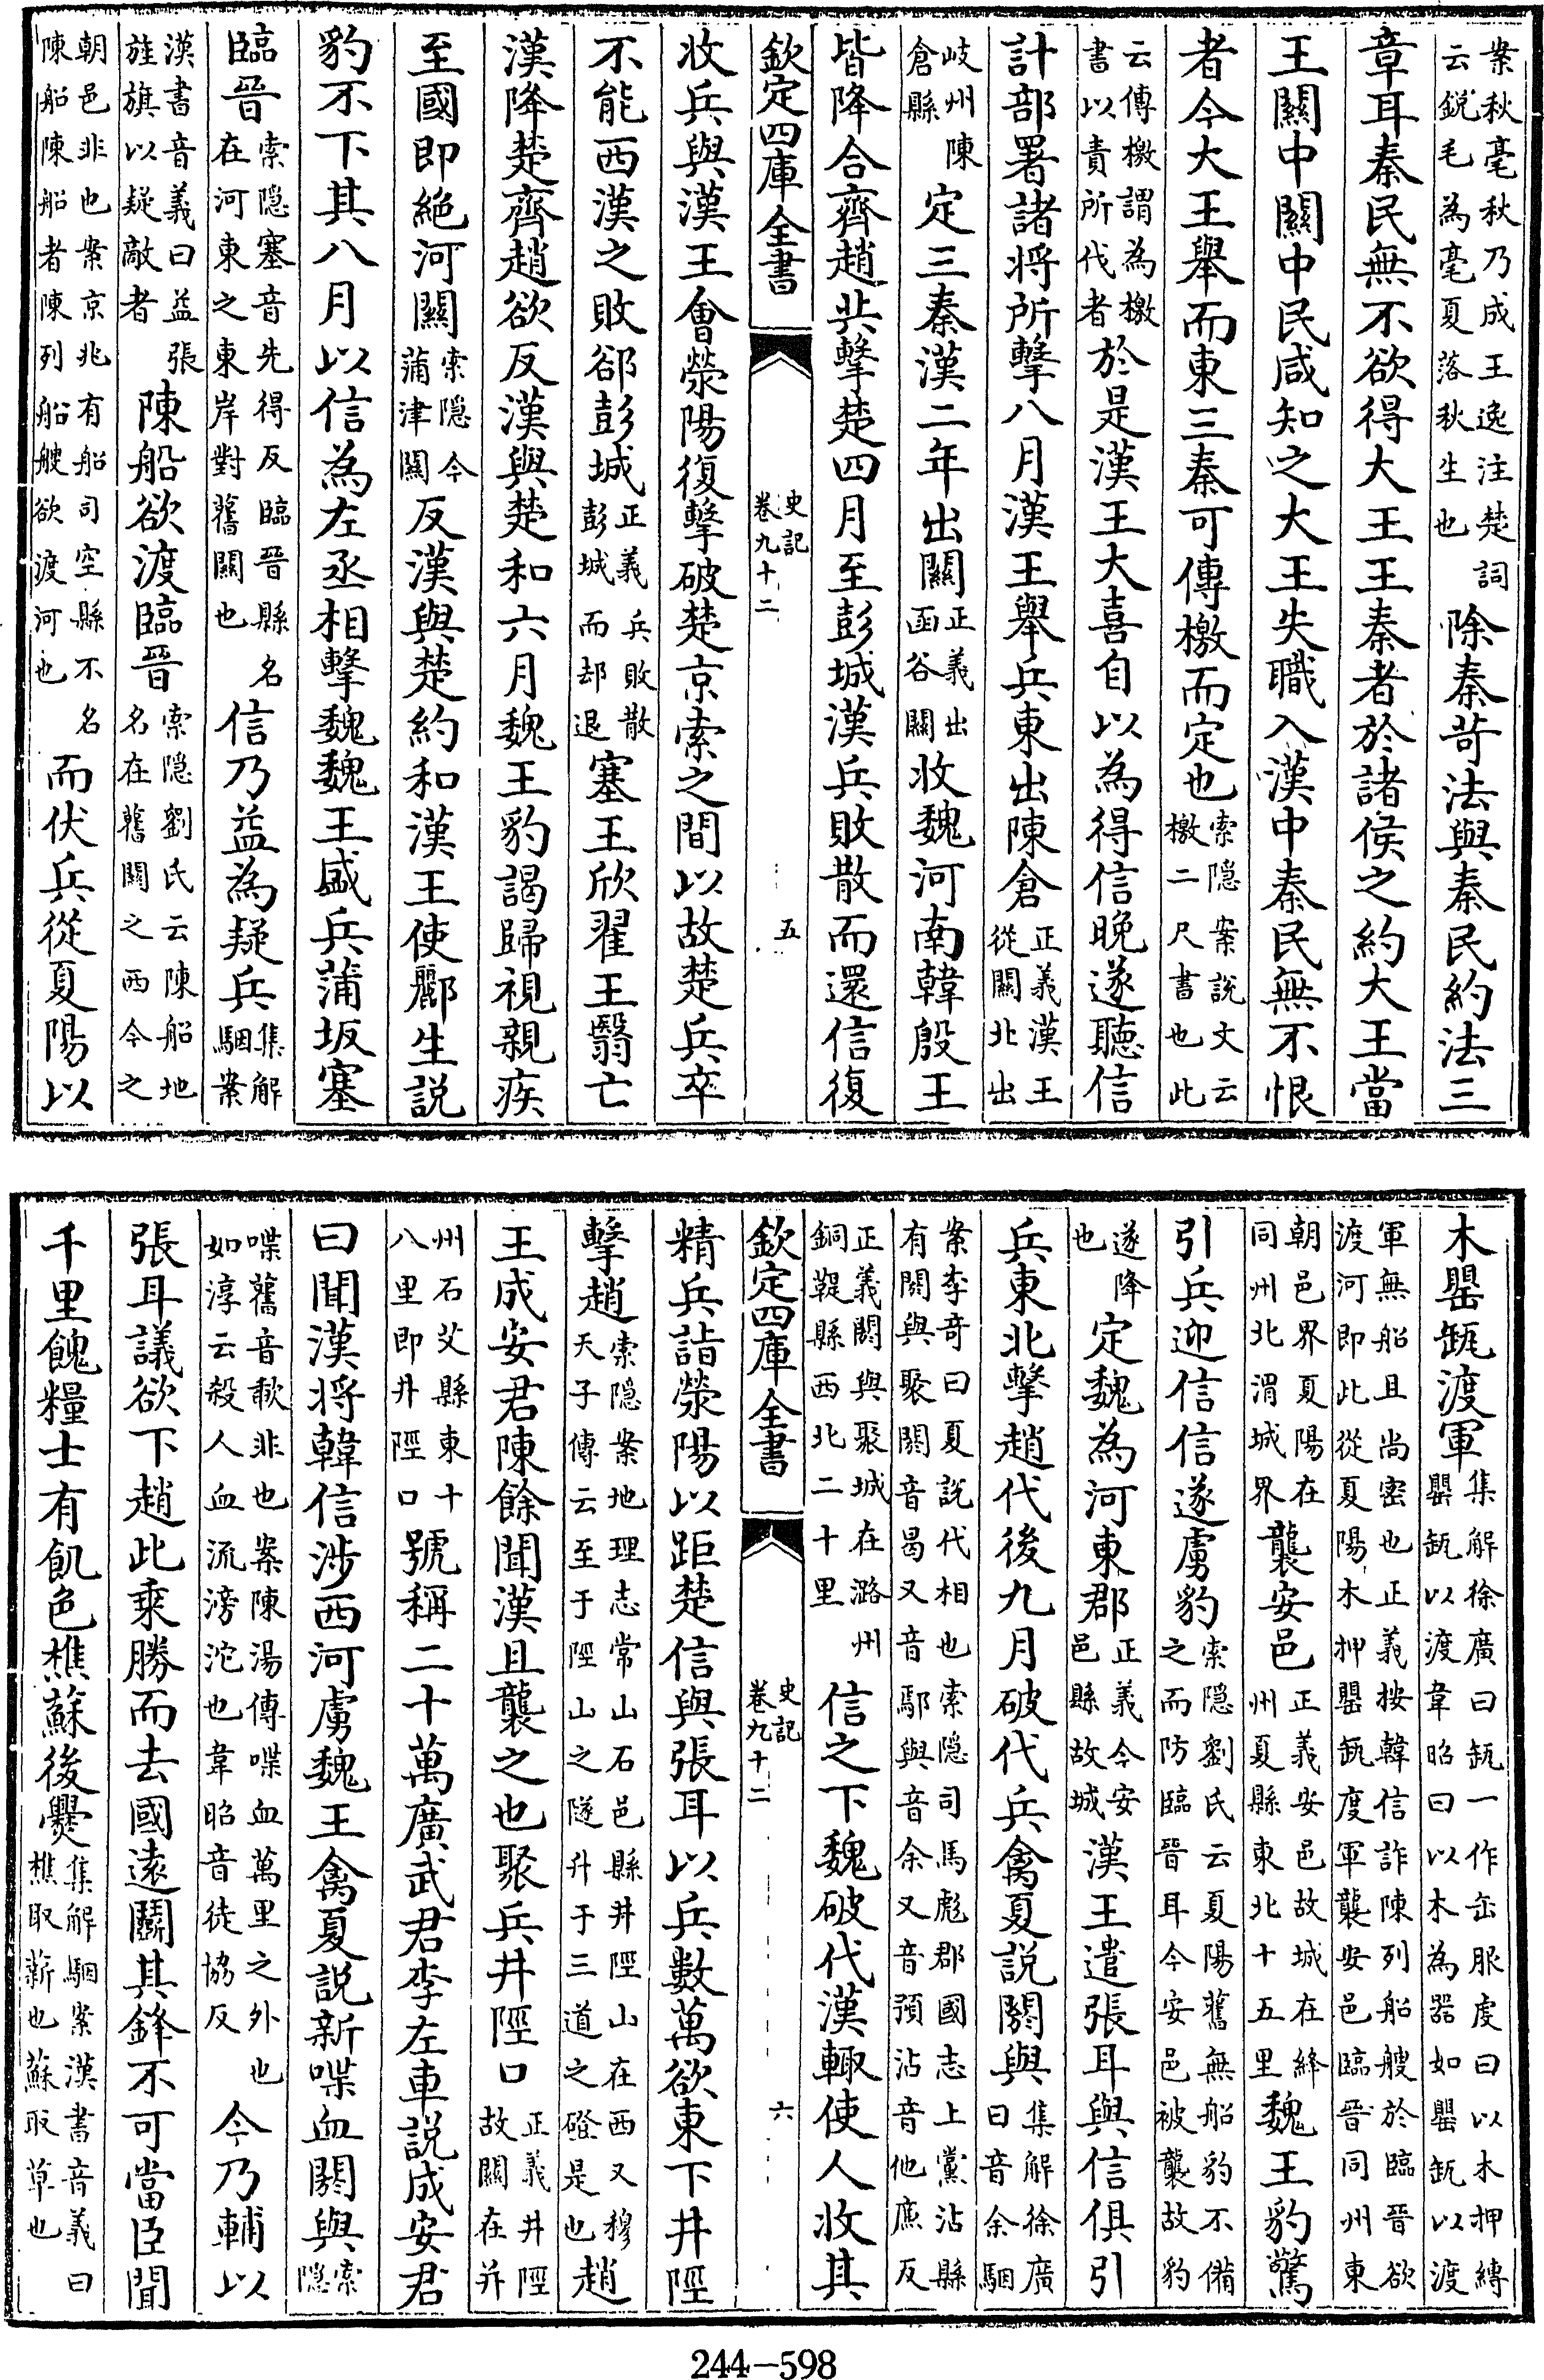 案秋毫秋乃成王逸注楚詞云鋭毛為毫夏落秋生也除秦苛法與秦民約法三
章耳秦民無不欲得大王王秦者於諸侯之約大王當
王關中關中民咸知之大王失職入漢中秦民無不恨
者今大王舉而東三秦可傳檄而定也索隱案說文云檄二尺書也此
云傳檄謂為檄書以責所代者於是漢王大喜自以為得信晚遂聽信
計部署諸將所擊八月漢王舉兵東出陳倉正義漢王從關北出
岐州陳倉縣定三秦漢二年出關正義出函谷關收魏河南韓殷王
皆降合齊趙共擊楚四月至彭城漢兵敗散而還信復
欽定四庫全書 史記卷九十二 五
收兵與漢王會滎陽復擊破楚京索之間以故楚兵卒
不能西漢之敗郤彭城正義兵敗散彭城而却退塞王欣翟王翳亡
漢降楚齊趙欲反漢與楚和六月魏王豹謁歸視親疾
至國即絶河關索隱今蒲津關反漢與楚約和漢王使酈生説
豹不下其八月以信為左丞相擊魏魏王盛兵蒲坂塞
臨晉索隱塞音先得反臨晉縣名在河東之東岸對舊關也信乃益為疑兵集解駰案
漢書音義曰益張旌旗以疑敵者陳船欲渡臨晉索隱劉氏云陳船地名在舊關之西今之
朝邑非也案京兆有船司空縣不名陳船陳船者陳列船艘欲渡河也而伏兵從夏陽以
木罌缻渡軍集解徐廣曰缻一作缶服虔曰以木押縛罌缻以渡韋昭曰以木為器如罌缻以渡
軍無船且尚密也正義按韓信詐陳列船艘於臨晉欲渡河即此從夏陽木押罌缻度軍襲安邑臨晉同州東
朝邑界夏陽在同州北渭城界襲安邑正義安邑故城在絳州夏縣東北十五里魏王豹驚
引兵迎信信遂虜豹索隱劉氏云夏陽舊無船豹不備之而防臨晉耳今安邑被襲故豹
遂降也定魏為河東郡正義今安邑縣故城漢王遣張耳與信俱引
兵東北擊趙代後九月破代兵禽夏説閼與集解徐廣曰音余駰
案李奇曰夏説代相也索隱司馬彪郡國志上黨沾縣有閼與聚閼音曷又音鄢與音余又音預沾音他廉反
正義閼與聚城在潞州銅鞮縣西北二十里信之下魏破代漢輒使人收其
欽定四庫全書 史記卷九十二 六
精兵詣滎陽以距楚信與張耳以兵數萬欲東下井陘
擊趙索隱案地理志常山石邑縣井陘山在西又穆天子傳云至于陘山之隧升于三道之磴是也趙
王成安君陳餘聞漢且襲之也聚兵井陘口正義井陘故關在并
州石艾縣東十八里即井陘口號稱二十萬廣武君李左車説成安君
曰聞漢將韓信涉西河虜魏王禽夏説新喋血閼與索隱
喋舊音歃非也案陳湯傳喋血萬里之外也如淳云殺人血流滂沱也韋昭音徒協反今乃輔以
張耳議欲下趙此乘勝而去國遠鬭其鋒不可當臣聞
千里餽糧士有飢色樵蘇後爨集解駰案漢書音義曰樵取薪也蘇取草也
244-598